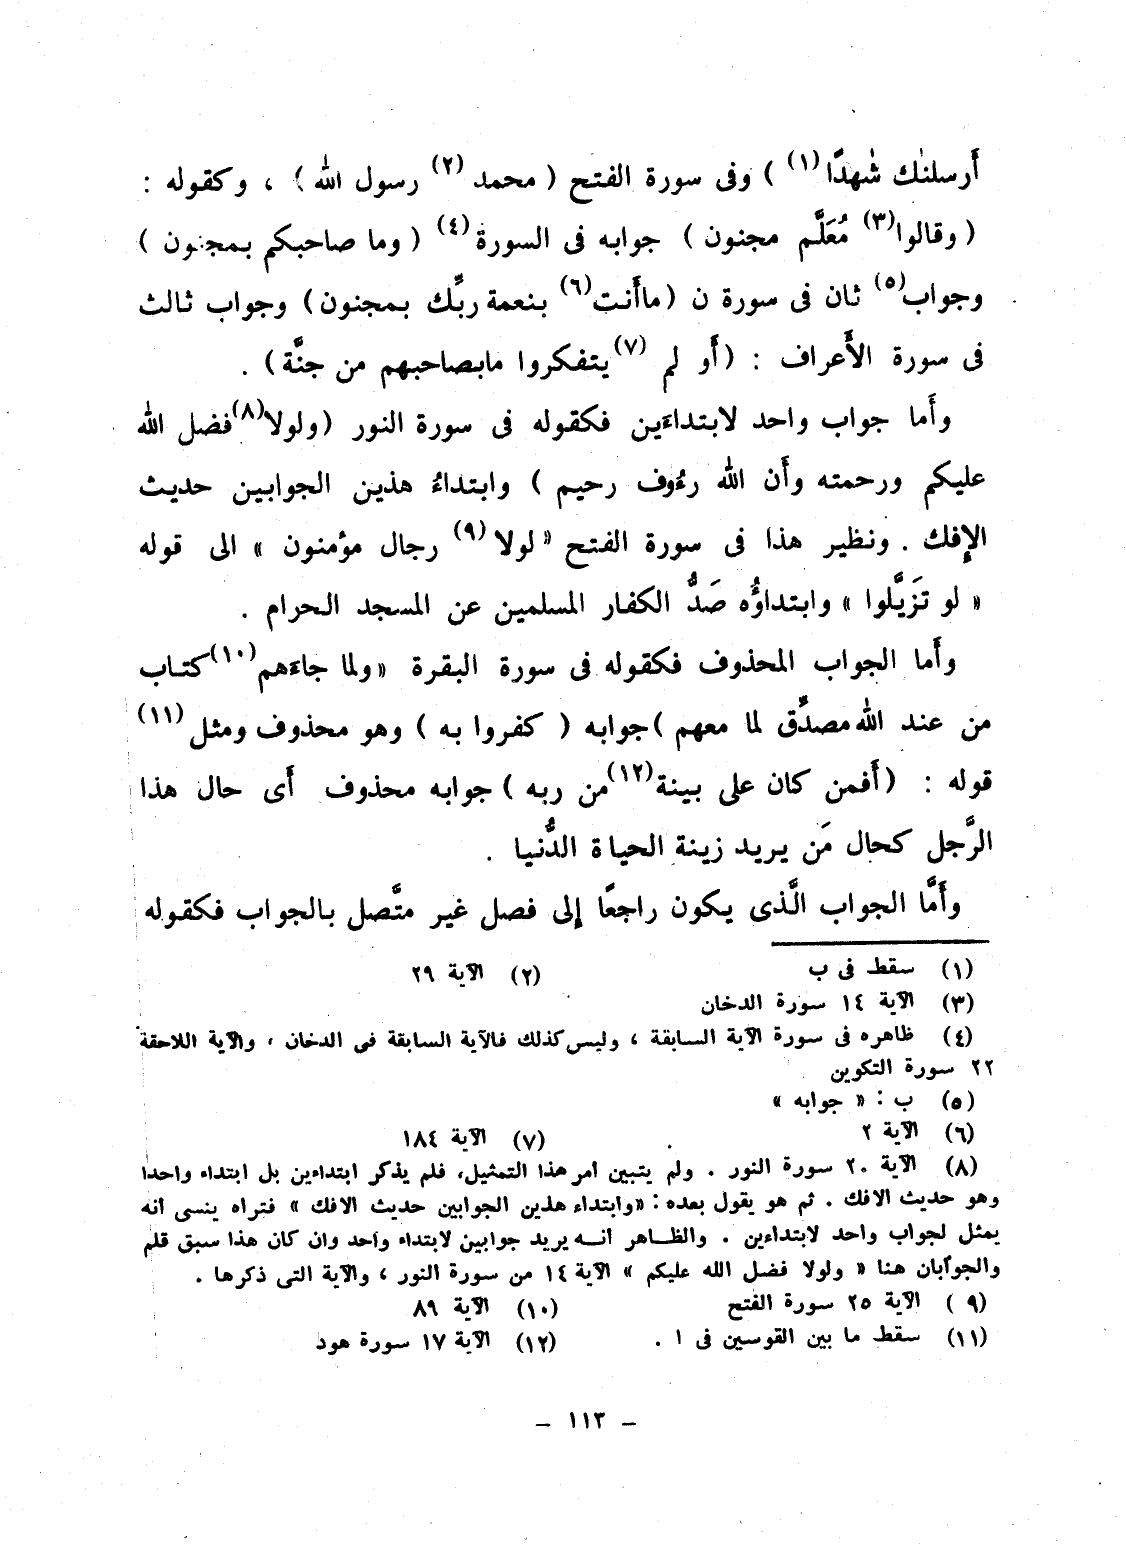 أرسلنٰك شٰهدًا(١) ) وفى سورة الفتح ( محمد (٢) رسول الله ) ، وكقوله :
( وقالوا(٣) مُعَلَّم مجنون ) جوابه فى السورة(٤) ( وما صاحبكم بمجنون )
وجواب(٥) ثان فى سورة ن (ماأنت(٦) بنعمة ربِّك بمجنون) وجواب ثالث
فى سورة الأَعراف : (أَو لم (٧) يتفكروا مابصاحبهم من جنَّة) .
وأَما جواب واحد لابتداءَين فكقوله فى سورة النور (ولولا(٨) فضل الله
عليكم ورحمته وأَن الله رءُوف رحيم ) وابتداءُ هذين الجوابين حديث
الإِفك . ونظير هذا فى سورة الفتح « لولا (٩) رجال مؤمنون » الى قوله
« لو تَزَيَّلوا » وابتداؤُه صَدُّ الكفار المسلمين عن المسجد الحرام .
وأَما الجواب المحذوف فكقوله فى سورة البقرة « ولما جاءَهم(١٠) كتاب
من عند الله مصدِّق لما معهم ) جوابه ( كفروا به ) وهو محذوف ومثل (١١)
قوله : (أَفمن كان على بينة(١٢) من ربه ) جوابه محذوف أَى حال هذا
الرَّجل كحال مَن يريد زينة الحياة الدُّنيا .
وأَمَّا الجواب الَّذى يكون راجعًا إلى فصل غير متَّصل بالجواب فكقوله
(١) سقط فى ب (٢) الآية ٢٩
(٣) الآية ١٤ سورة الدخان
(٤) ظاهره فى سورة الآية السابقة ، وليس كذلك فالآية السابقة فى الدخان ، والآية اللاحقة
٢٢ سورة التكوين
(٥) ب : « جوابه »
(٦) الآية ٢ (٧) الآية ١٨٤
(٨) الآية ٢٠ سورة النور . ولم يتبين امر هذا التمثيل، فلم يذكر ابتداءين بل ابتداء واحدا
وهو حديث الافك . ثم هو يقول بعده : «وابتداء هذين الجوابين حديث الافك » فتراه ينسى انه
يمثل لجواب واحد لابتداءين . والظاهر انه يريد جوابين لابتداء واحد وان كان هذا سبق قلم
والجوابان هنا « ولولا فضل الله عليكم » الآية ١٤ من سورة النور ، والآية التى ذكرها .
(٩ ) الآية ٢٥ سورة الفتح (١٠) الآية ٨٩
(١١) سقط ما بين القوسين فى ا . (١٢) الآية ١٧ سورة هود
– ١١٣ –